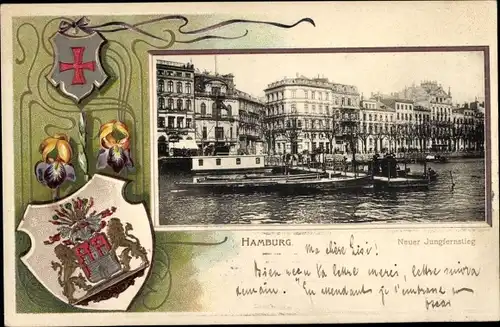 HAMBURG.
Neuer Jungfernstieg
Ma chère Lisi!
Bien reçu ta lettre merci, lettre suivra
demain. En attendant je t'embrasse